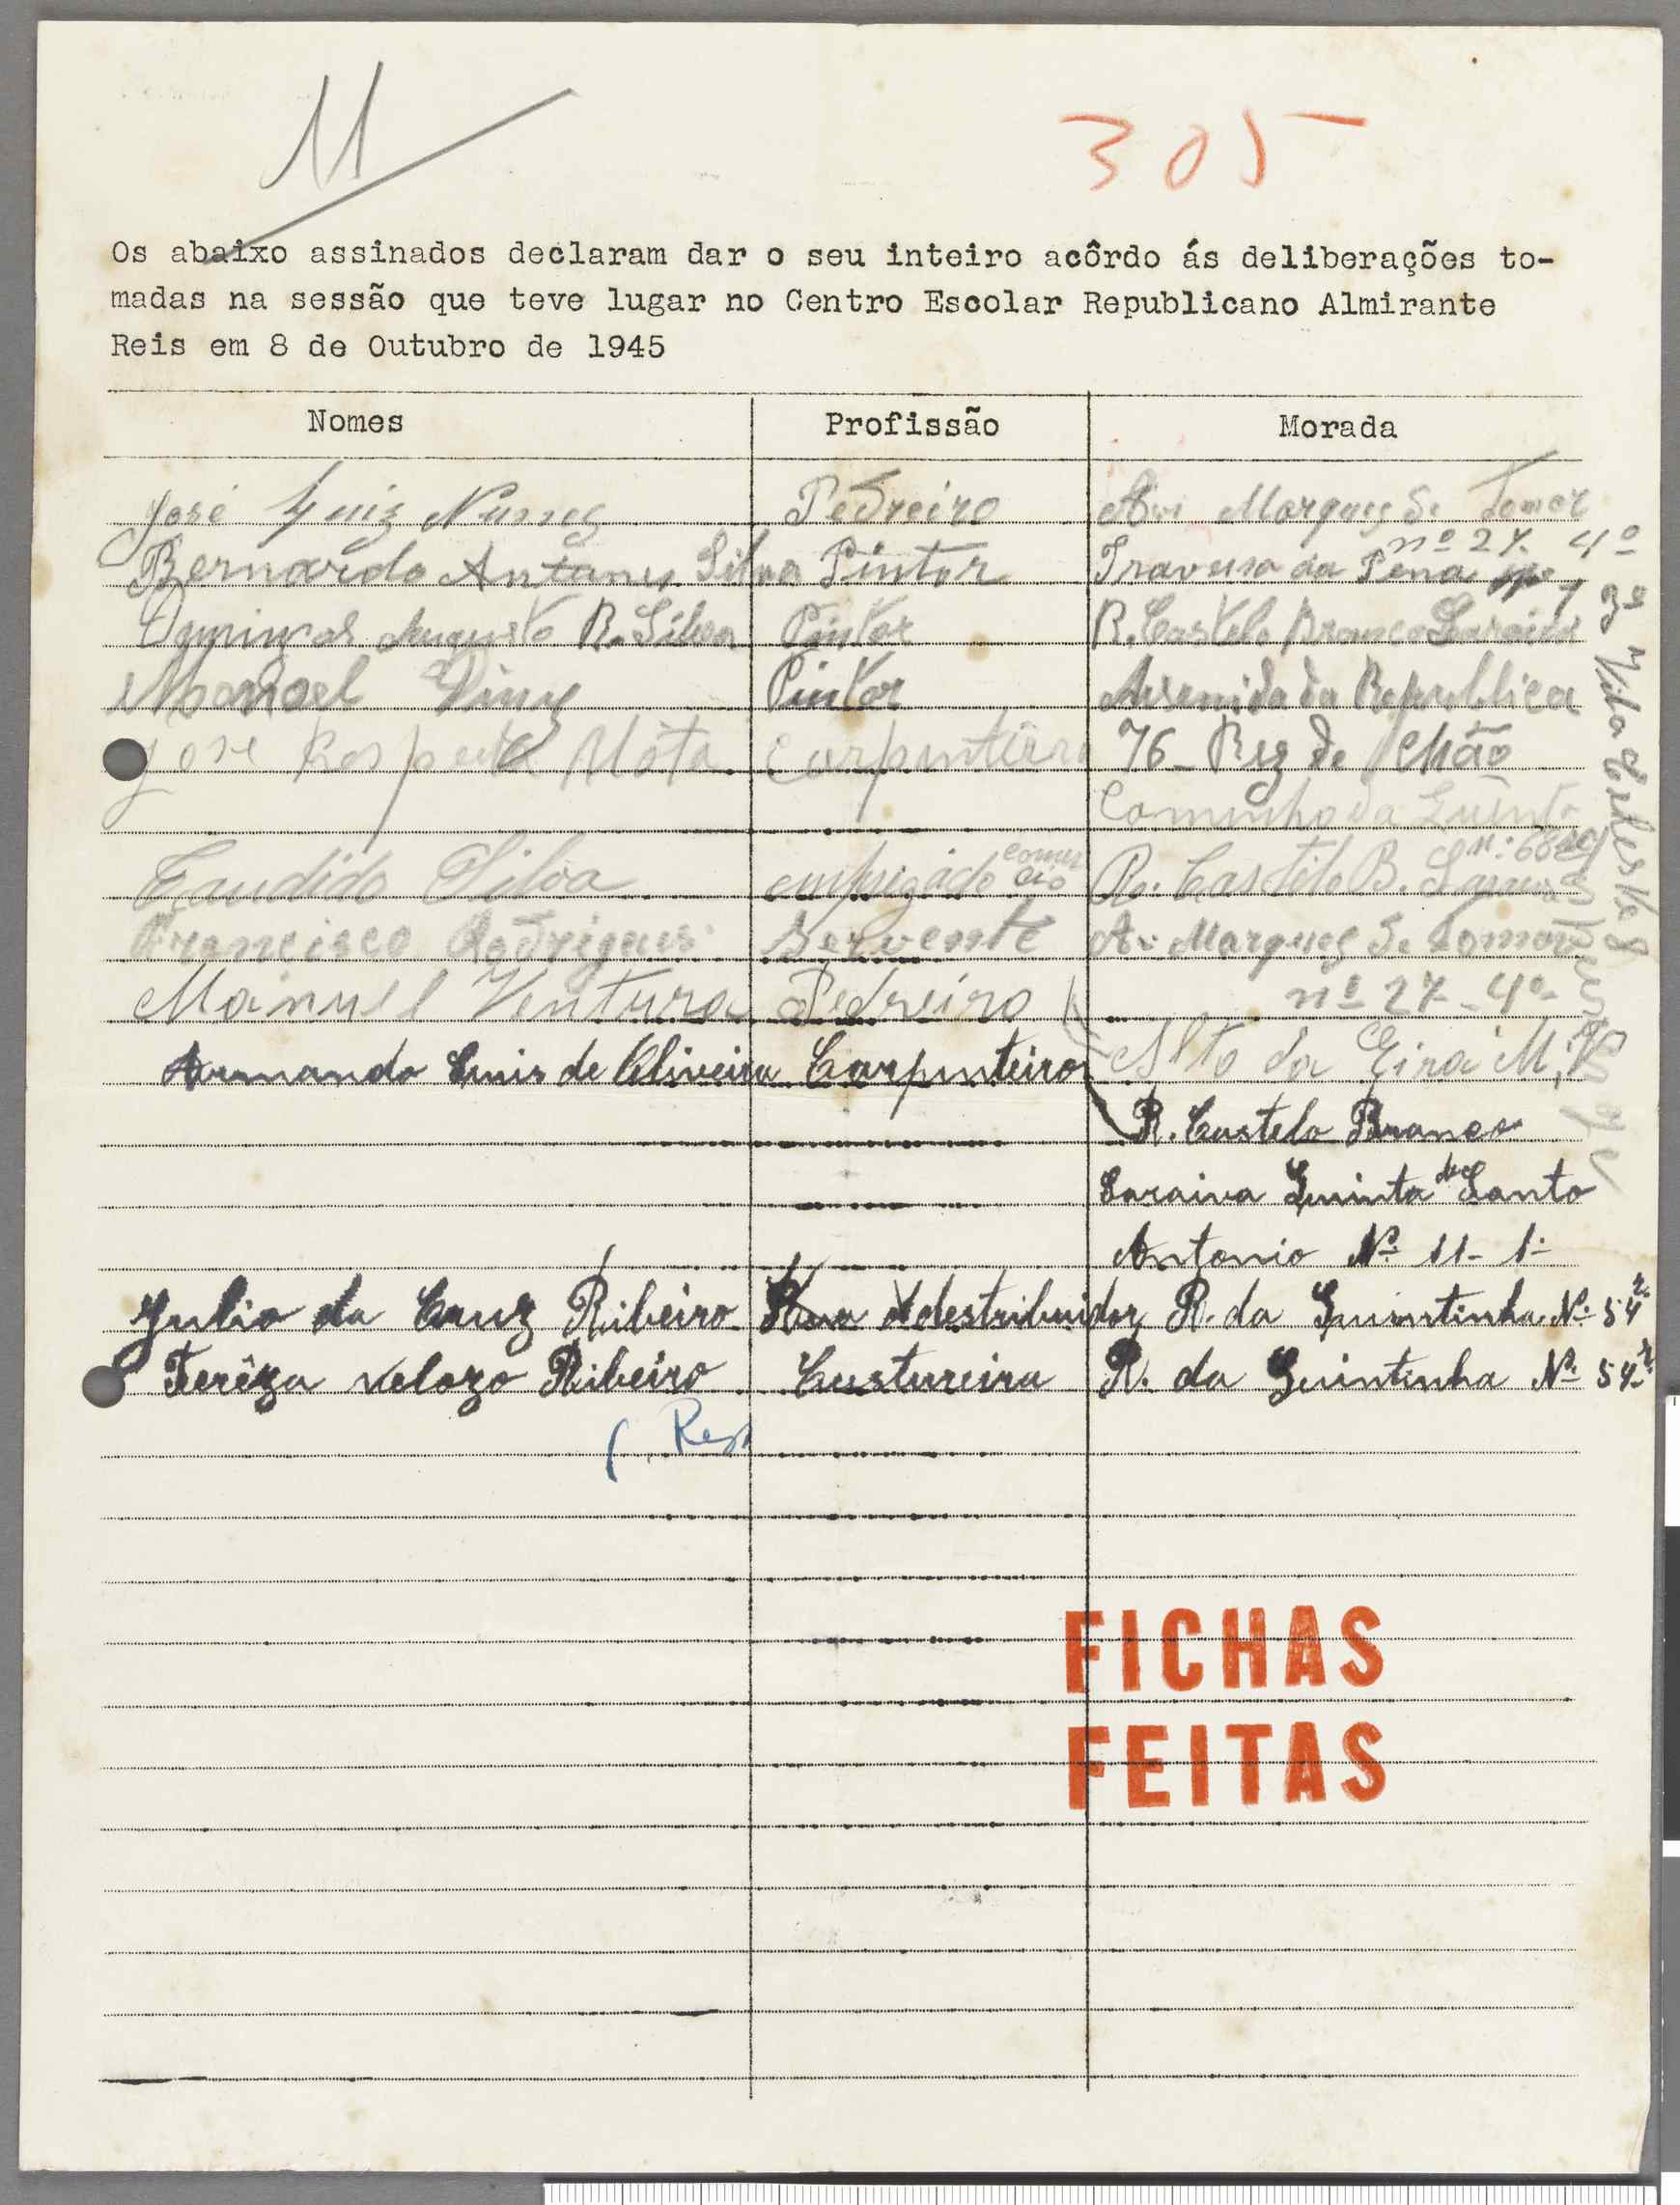 11
305
Os abaixo assinados declaram dar o seu inteiro acôrdo ás deliberações to-
madas na sessão que teve lugar no Centro Escolar Republicano Almirante
Reis em 8 de Outubro de 1945
Nomes Profissão Morada
José Luiz Nunes Pedreiro Av. Marques de Tomar
nº 27. 4º
Bernardo Antunes Silva Pintor Travessa da Pena 7 3º
Domingos Augusto R. Silva Pintor R. Castelo Branco Saraiva
Manoel Diny Pintor Avenida da Republica
José Mota Carpinteiro 76 - Rez de Chão
Caminho da Quinta
Candido Silva empregado comercio R. Castelo B. Saraiva
Francisco Rodrigues Servente Av. Marques de Tomar
nº 27 - 4º
Manuel Ventura Pedreiro Alto da Eira M,
Armando Luis de Oliveira Carpinteiro R. Castelo Branco
Saraiva Quinta de Santo
Antonio Nº 11- 1º
Julio da Cruz Ribeiro destribuidor R. da Quintinha Nº 54
Terêza Velozo Ribeiro Custureira R. da Quintinha Nº 54
Vila Celeste 8
FICHAS
FEITAS